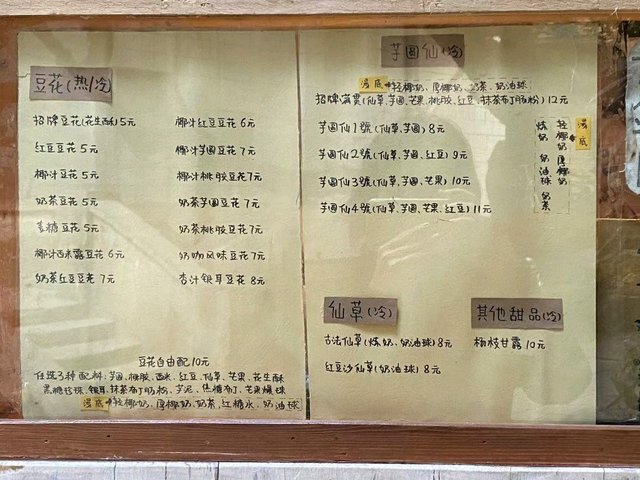 豆花(热/冷)
招牌豆花(花生酥)5元
红豆豆花 5元
椰汁豆花 5元
奶茶豆花 5元
姜糖豆花 5元
椰汁西米露豆花 6元
奶茶红豆豆花 7元
椰汁红豆豆花 6元
椰汁芋圆豆花 7元
椰汁桃胶豆花 7元
奶茶芋圆豆花 7元
奶茶桃胶豆花 7元
奶咖风味豆花 7元
杏汁银耳豆花 8元
豆花自由配 10元
任选3种配料: 芋圆、桃胶、西米、红豆、仙草、芒果、花生酥
黑糖珍珠、银耳、抹茶布丁肠粉、芋泥、焦糖布丁、芒果爆珠
湯底 轻椰奶、厚椰奶、奶茶、红糖水、奶油球
芋圓仙(冷)
湯底 轻椰奶、厚椰奶、奶茶、奶油球
招牌满贯(仙草、芋圆、芒果、桃胶、红豆、抹茶布丁肠粉) 12元
芋圆仙1號(仙草、芋圆) 8元
芋圆仙2號(仙草、芋圆、红豆) 9元
芋圆仙3號(仙草、芋圆、芒果) 10元
芋圆仙4號(仙草、芋圆、芒果、红豆) 11元
湯底
轻椰奶 厚椰奶
炼奶 奶油球 奶茶
仙草(冷)
古法仙草(炼奶、奶油球) 8元
红豆沙仙草(奶油球) 8元
其他甜品(冷)
杨枝甘露 10元